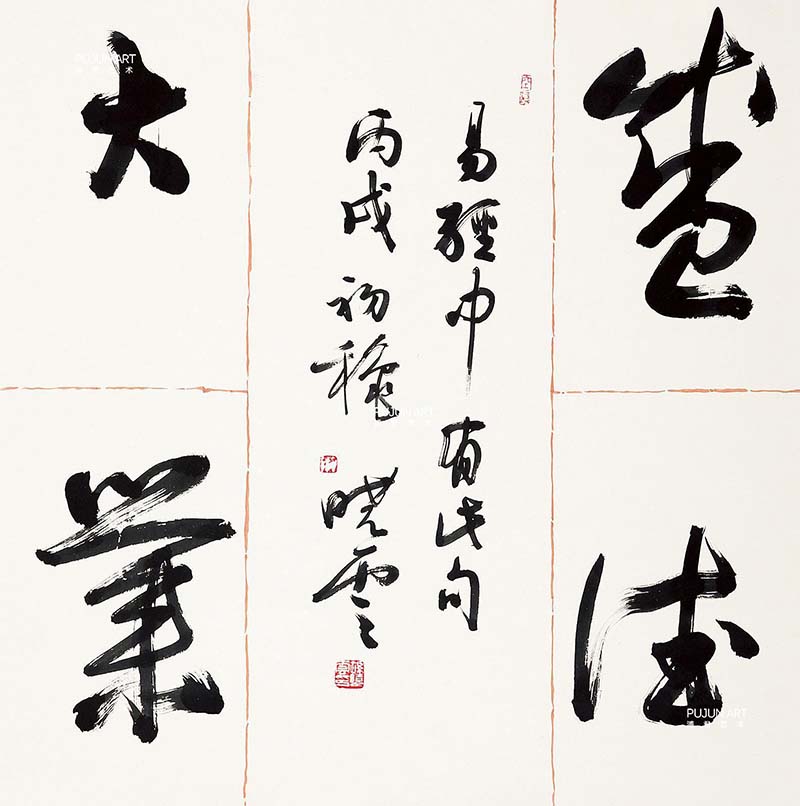 盛德
大業
易經中有此句
丙戌初穐
曉雲
PUJUN ART
PUJUN ART
PUJUN ART